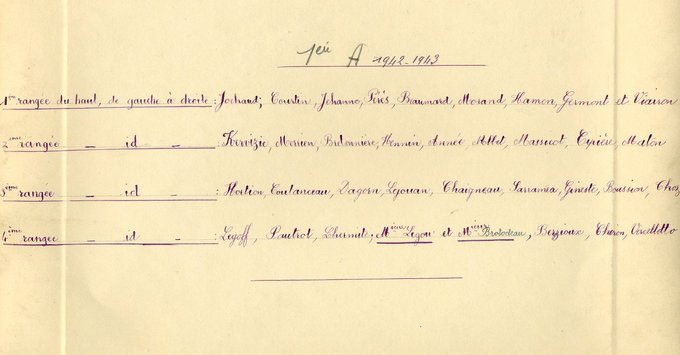 1ère A 1942-1943
1ère rangée du haut, de gauche à droite : Jochaud; Courtin, Jehanno, Pérés, Beaumard, Morand, Hamon, Germont et Viaison
2ème rangée - id - : Kervizic, Morvien, Bretonnière, Hennin, Année, Allot, Massicot, Epière, Malon
3ème rangée - id - : Hortion, Coutanceau, Dagorn, Lejouan, Chaigneau, Sarramia, Gineste, Boussion,
4ème rangée - id - : Legoff, Pautrot, Lhermite, Mrieur Legou et Mrieur Brototeau, Bezzioux, Chéron,